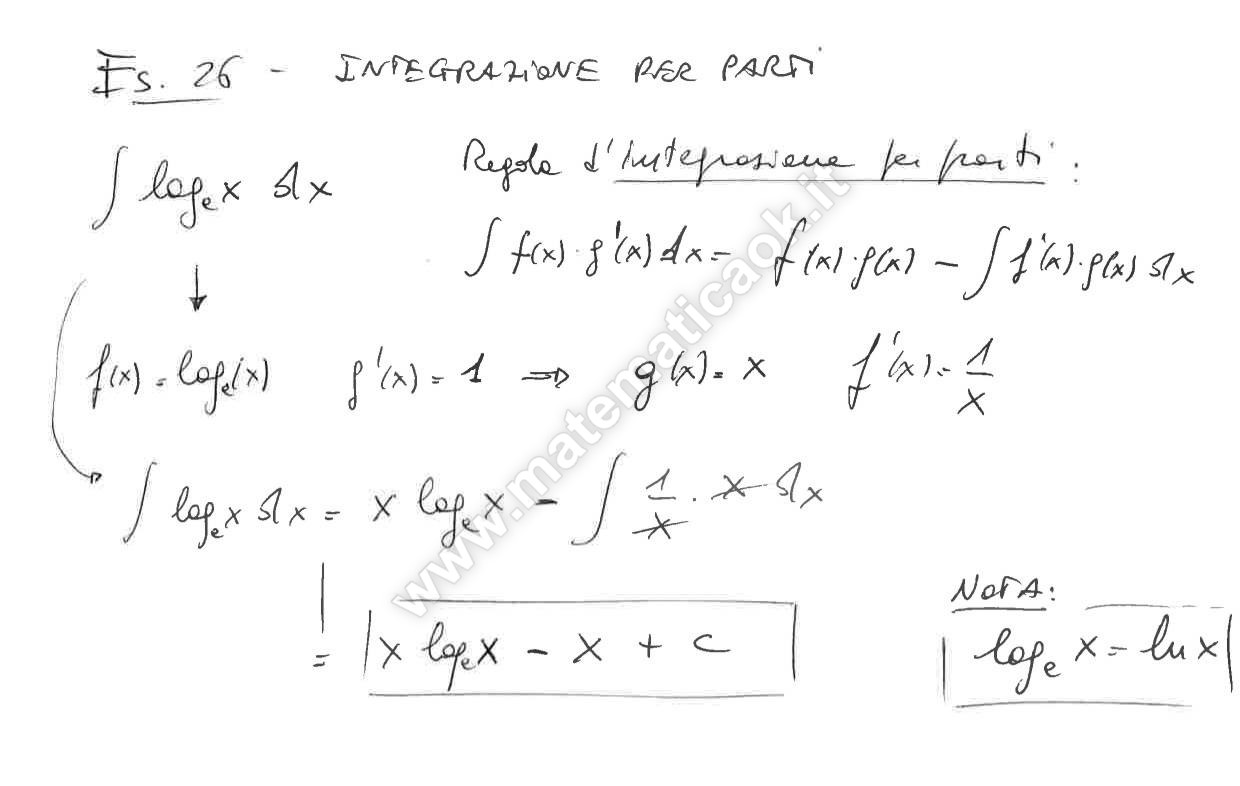 Es. 26 - INTEGRAZIONE PER PARTI
∫ logₑx dx
Regola d'integrazione per parti:
∫ f(x)·g'(x) dx = f(x)·g(x) - ∫ f'(x)·g(x) dx
↓
f(x) = logₑ(x) g'(x) = 1 ⇒ g(x) = x f'(x) = 1/x
∫ logₑx dx = x logₑx - ∫ 1/x · x dx
= x logₑx - x + c
NOTA:
logₑ x = ln x
www.matematicaok.it